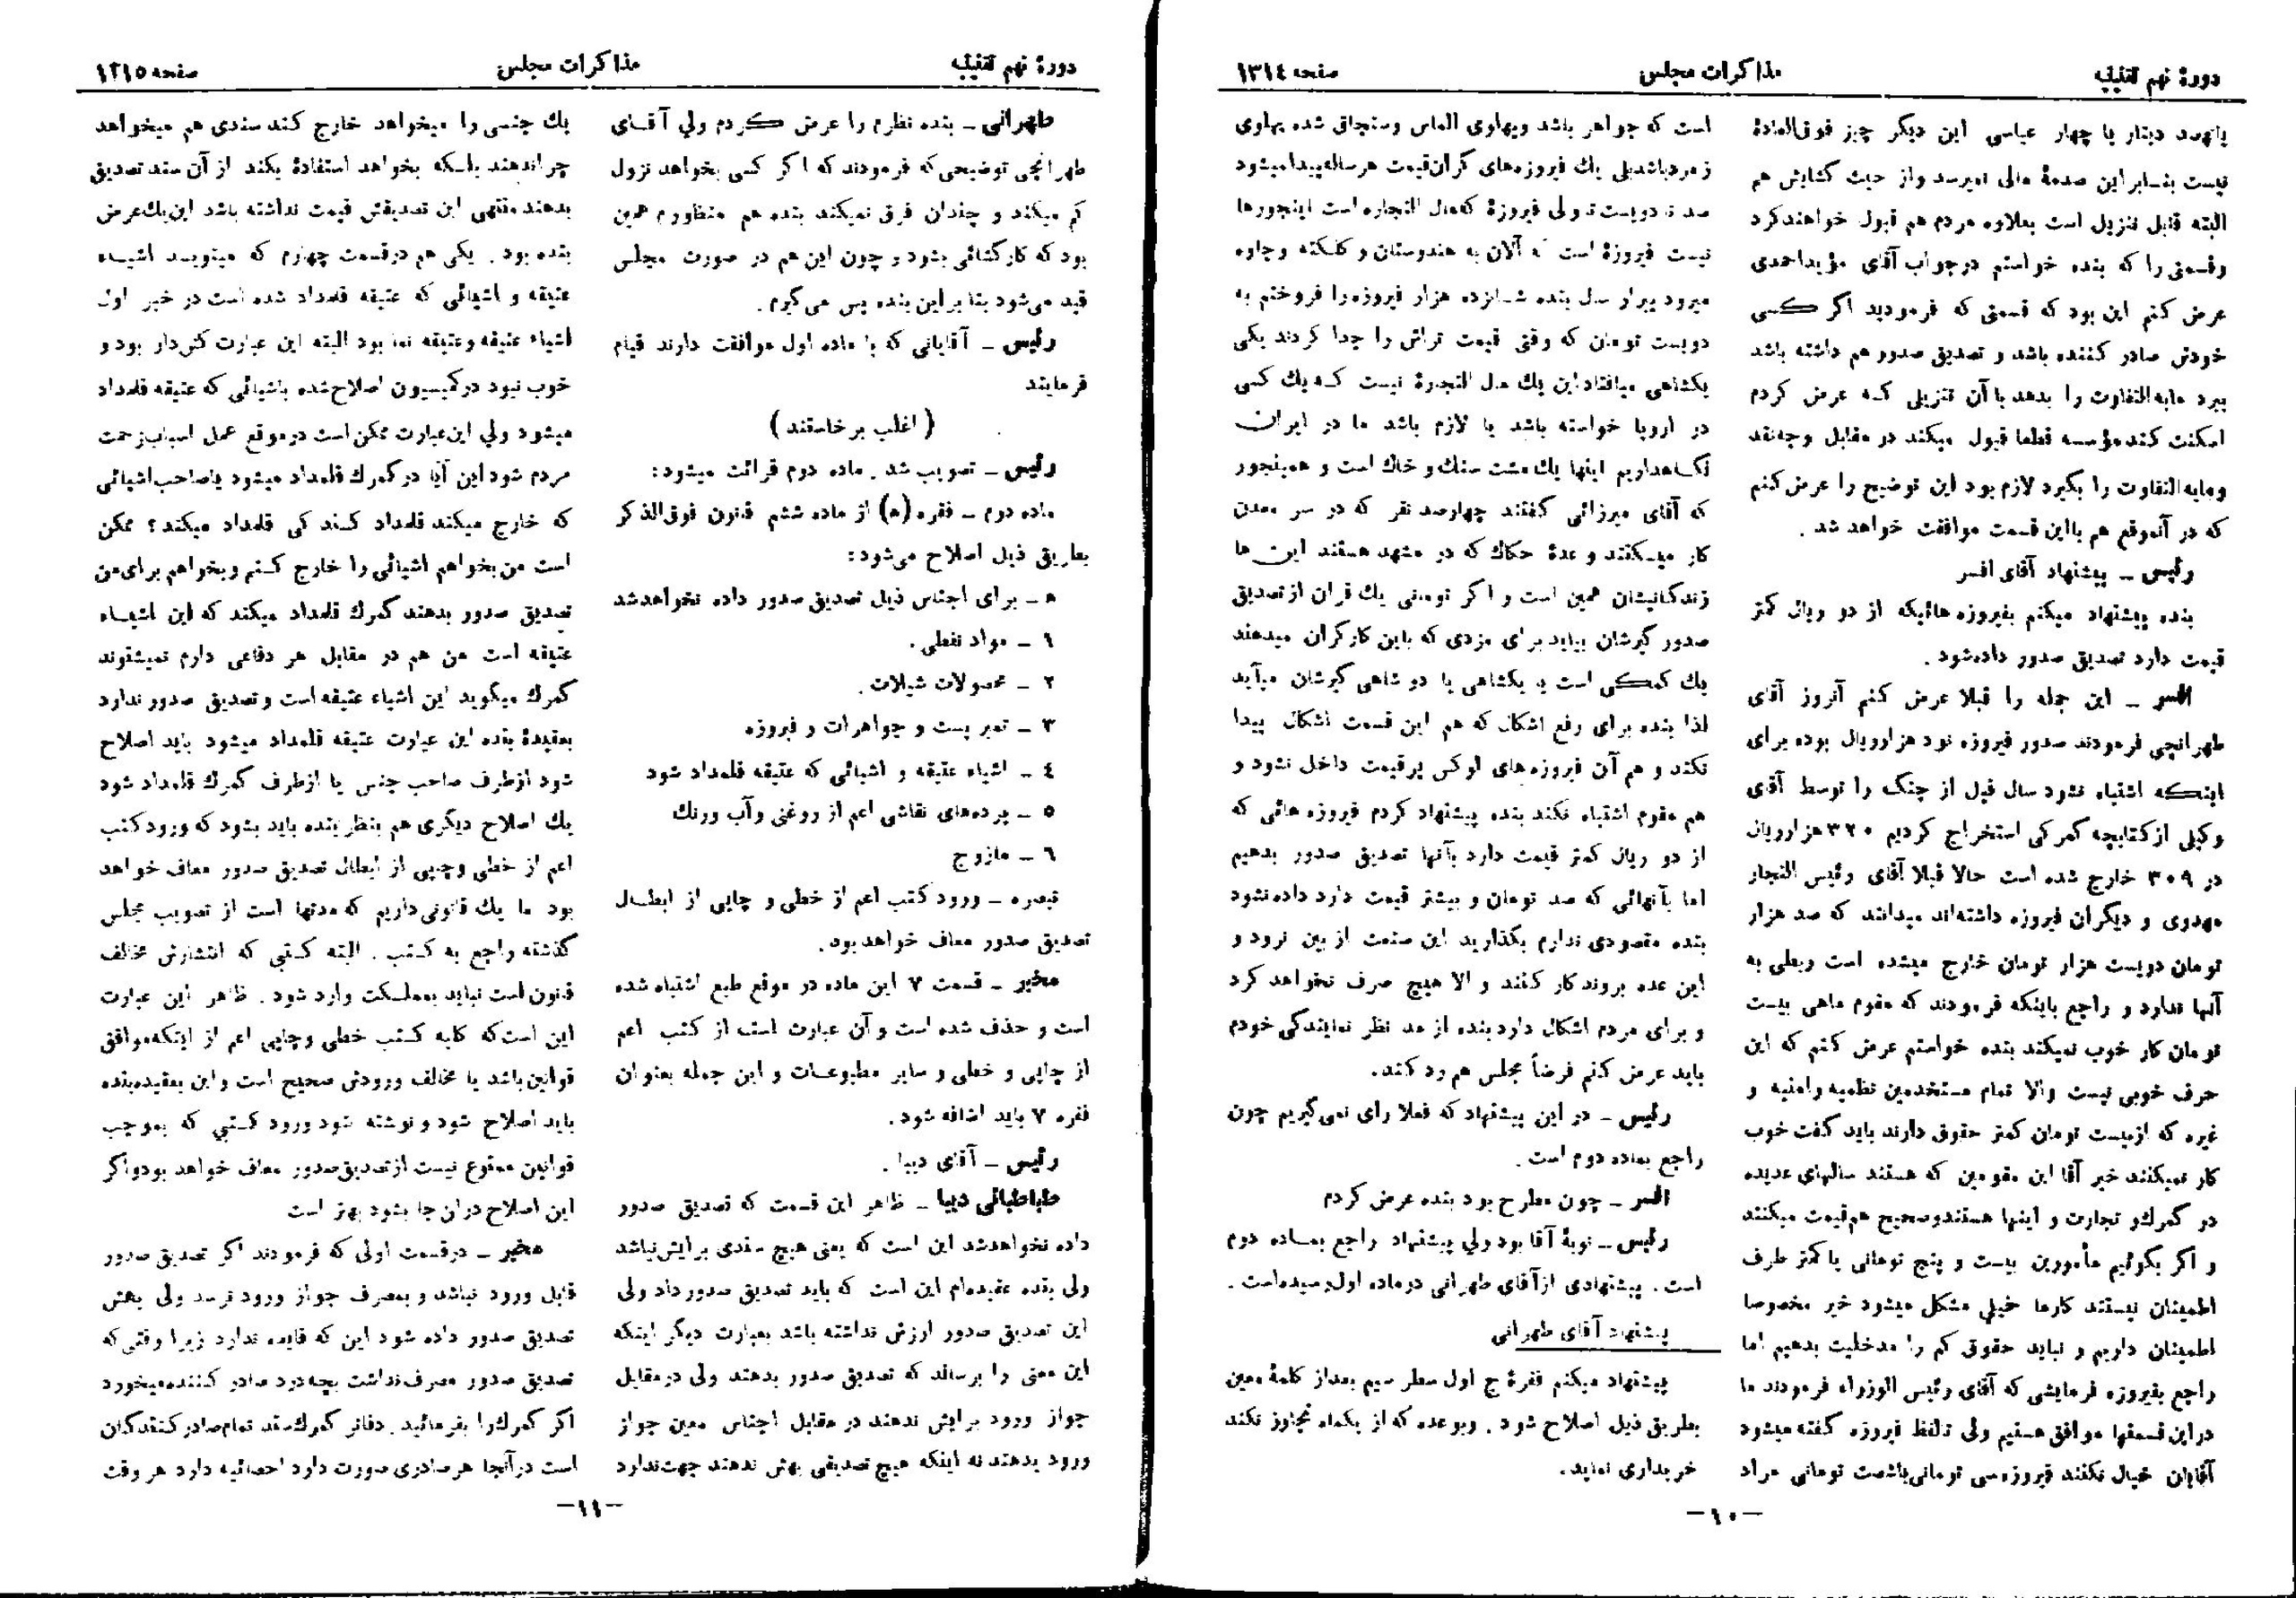 دورهٔ نهم تقنینیه
مذاکرات مجلس
صفحه ١٣١٤
پانصد دینار یا چهار عباسی این دیگر چیز فوق‌العادهٔ
نیست بنابراین صدمهٔ مالی نمیرسد واز حیث گشایش هم
البته قابل تنزیل است بعلاوه مردم هم قبول خواهند کرد
وقسمتی را که بنده خواستم درجواب آقای مؤیداحمدی
عرض کنم این بود که قسمتی که فرمودید اگر کسی
خودش صادر کننده باشد و تصدیق صدور هم داشته باشد
ببرد مابه‌التفاوت را بدهد با آن تنزیلی که عرض کردم
امکنت کند مؤسسه قطعا قبول میکند در مقابل وجه‌نقد
ومابه‌التفاوت را بگیرد لازم بود این توضیح را عرض کنم
که در آنموقع هم بااین قسمت موافقت خواهد شد .
رئیس ــ پیشنهاد آقای افسر
بنده پیشنهاد میکنم بفیروزه هائیکه از دو ریال کمتر
قیمت دارد تصدیق صدور داده‌شود .
افسر ــ این جمله را قبلا عرض کنم آنروز آقای
طهرانچی فرمودند صدور فیروزه نود هزارریال بوده برای
اینکه اشتباه نشود سال قبل از جنگ را توسط آقای
وکیلی از کتابچه گمرکی استخراج کردیم ٣٢٠ هزارریال
در ٣٠٩ خارج شده است حالا قبلا آقای رئیس التجار
مهدوی و دیگران فیروزه داشته‌اند میدانند که صد هزار
تومان دویست هزار تومان خارج میشده است وبطی به
آنها ندارد و راجع باینکه فرمودند که مقوم ماهی بیست
تومان کار خوب نمیکند بنده خواستم عرض کنم که این
حرف خوبی نیست والا تمام مستخدمین نظمیه وامنیه و
غیره که ازبیست تومان کمتر حقوق دارند باید گفت خوب
کار نمیکنند خیر آقا این مقومین که هستند سالهای عدیده
در گمرک‌و تجارت و اینها هستندوصحیح هم‌قیمت میکنند
و اگر بگوئیم مأمورین بیست و پنج تومانی یا کمتر طرف
اطمینان نیستند کارها خیلی مشکل میشود خیر مخصوصا
اطمینان داریم و نباید حقوق کم را مدخلیت بدهیم اما
راجع بفیروزه فرمایشی که آقای رئیس الوزراء فرمودند ما
دراین‌قسمتها موافق هستیم ولی تلفظ فیروزه گفته میشود
آقایان خیال نکنند فیروزه سی تومانی‌یاشصت تومانی مراد
است که جواهر باشد وپهلوی الماس وسنجاق شده پهلوی
زمردباشدبلی یك فیروزه‌های گران‌قیمت هرساله‌پیدا‌میشود
صد تا دویست تا ولی فیروزهٔ که‌مال التجاره است اینجورها
نیست فیروزهٔ است که آلان به هندوستان و کلکته وجاوه
میرود پیرار سال بنده شانزده هزار فیروزه را فروختم به
دویست تومان که وقتی قیمت تراش را جدا کردند یکی
یکشاهی میافتاداین یك مال التجارهٔ نیست که یك کسی
در اروپا خواسته باشد یا لازم باشد ما در ایران
نگاهداریم اینها یك مشت سنگ و خاك است و همینجور
که آقای میرزائی گفتند چهارصد نفر که در سر معدن
کار میکنند و عدهٔ حکاك که در مشهد هستند این ها
زندگانیشان همین است و اگر تومانی یك قران از تصدیق
صدور گیرشان بیاید برای مزدی که باین کارگران میدهند
یك کمکی است یا یکشاهی یا دو شاهی گیرشان میآید
لذا بنده برای رفع اشکال که هم این قسمت اشکال پیدا
نکند و هم آن فیروزه‌های لوکس پرقیمت داخل نشود و
هم مقوم اشتباه نکند بنده پیشنهاد کردم فیروزه هائی که
از دو ریال کمتر قیمت دارد بآنها تصدیق صدور بدهیم
اما بآنهائی که صد تومان و بیشتر قیمت دارد داده‌نشود
بنده مقصودی ندارم بگذارید این صنعت از بین نرود و
این عده بروند کار کنند و الا هیچ صرف نخواهد کرد
و برای مردم اشکال دارد بنده از مد نظر نمایندگی خودم
باید عرض کنم فرضاً مجلس هم رد کند.
رئیس ــ در این پیشنهاد که فعلا رأی نمی‌گیریم چون
راجع بماده دوم است .
افسر ــ چون مطرح بود بنده عرض کردم
رئیس ــ نوبهٔ آقا بود ولی پیشنهاد راجع بماده دوم
است . پیشنهادی ازآقای طهرانی درماده اول‌رسیده‌است .
پیشنهاد آقای طهرانی
پیشنهاد میکنم فقرهٔ ج اول سطر سیم بعداز کلمهٔ معین
بطریق ذیل اصلاح شود . وبوعده که از یکماه تجاوز نکند
خریداری نماید.
–١٠–
دورهٔ نهم تقنینیه
مذاکرات مجلس
صفحه ١٢١٥
طهرانی ــ بنده نظرم را عرض کردم ولی آقای
طهرانچی توضیحی‌که فرمودند که اگر کسی بخواهد نزول
کم میکند و چندان فرق نمیکند بنده هم منظورم همین
بود که کارگشائی بشود و چون این هم در صورت مجلس
قید می‌شود بنابراین بنده پس می‌گیرم .
رئیس ــ آقایانی که با ماده اول موافقت دارند قیام
فرمایند
( اغلب برخاستند )
رئیس ــ تصویب شد . ماده دوم قرائت میشود :
ماده دوم ــ فقره (ه) از ماده ششم قانون فوق‌الذکر
بطریق ذیل اصلاح می‌شود:
ه ــ برای اجناس ذیل تصدیق صدور داده نخواهدشد
١ ــ مواد نفطی .
٢ ــ محصولات شیلات .
٣ ــ تمبر پست و جواهرات و فیروزه
٤ ــ اشیاء عتیقه و اشیائی که عتیقه قلمداد شود
٥ ــ پرده‌های نقاشی اعم از روغنی وآب ورنك
٦ ــ مازوج
تبصره ــ ورود کتب اعم از خطی و چاپی از ابطال
تصدیق صدور معاف خواهد بود.
مخبر ــ قسمت ٧ این ماده در موقع طبع اشتباه شده
است و حذف شده است و آن عبارت است از کتب اعم
از چاپی و خطی و سایر مطبوعات و این جمله بعنوان
فقره ٧ باید اضافه شود.
رئیس ــ آقای دیبا .
طباطبائی دیبا ــ ظاهر این قسمت که تصدیق صدور
داده نخواهدشد این است که یعنی هیچ سندی برایش‌نباشد
ولی بنده عقیده‌ام این است که باید تصدیق صدور داد ولی
این تصدیق صدور ارزش نداشته باشد بعبارت دیگر اینکه
این معنی را برساند که تصدیق صدور بدهند ولی درمقابل
جواز ورود برایش ندهند در مقابل اجناس معین جواز
ورود بدهند نه اینکه هیچ تصدیقی بهش ندهند جهت‌ندارد
یك جنسی را میخواهد خارج کند سندی هم میخواهد
چراندهند بلکه بخواهد استفادهٔ بکند از آن سند تصدیق
بدهند منتهی این تصدیقش قیمت نداشته باشد این‌یك‌عرض
بنده بود . یکی هم درقسمت چهارم که مینویسد اشیاء
عتیقه و اشیائی که عتیقه قلمداد شده است در خبر اول
اشیاء عتیقه وعتیقه نما بود البته این عبارت کش‌دار بود و
خوب نبود درکمیسیون اصلاح‌شده باشیائی که عتیقه قلمداد
میشود ولی این‌عبارت ممکن‌است درموقع عمل اسباب‌زحمت
مردم شود این آیا در گمرك قلمداد میشود یاصاحب‌اشیائی
که خارج میکند قلمداد کند کی قلمداد میکند ؟ ممکن
است من بخواهم اشیائی را خارج کنم وبخواهم برای‌من
تصدیق صدور بدهند گمرك قلمداد میکند که این اشیاء
عتیقه است من هم در مقابل هر دفاعی دارم نمیشنوند
گمرك میگوید این اشیاء عتیقه است و تصدیق صدور ندارد
بعقیدهٔ بنده این عبارت عتیقه قلمداد میشود باید اصلاح
شود ازطرف صاحب جنس یا ازطرف گمرك قلمداد شود
یك اصلاح دیگری هم بنظر بنده باید بشود که ورود کتب
اعم از خطی وچاپی از ابطال تصدیق صدور معاف خواهد
بود ما یك قانونی داریم که مدتها است از تصویب مجلس
گذشته راجع به کتب . البته کتبی که انتشارش مخالف
قانون است نباید بمملکت وارد شود . ظاهر این عبارت
این است‌که کلیه کتب خطی وچاپی اعم از اینکه‌موافق
قوانین باشد یا مخالف ورودش صحیح است و این بعقیده‌بنده
باید اصلاح شود و نوشته شود ورود کتبی که بموجب
قوانین ممنوع نیست ازتصدیق‌صدور معاف خواهد بودواگر
این اصلاح دراین جا بشود بهتر است
مخبر ــ درقسمت اولی که فرمودند اگر تصدیق صدور
قابل ورود نباشد و بمصرف جواز ورود نرسد ولی بهش
تصدیق صدور داده شود این که فایده ندارد زیرا وقتی‌که
تصدیق صدور مصرف‌نداشت بچه‌درد صادر کننده‌میخورد
اگر گمرك‌را بفرمائید . دفاتر گمرك‌سند تمام‌صادرکنندگان
است درآنجا هرصادری صورت دارد احصائیه دارد هر وقت
–١١–